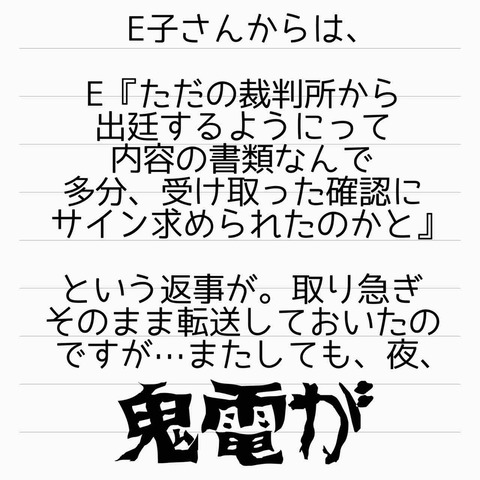 E子さんからは、
E『ただの裁判所から
出廷するようにって
内容の書類なんで
多分、受け取った確認に
サイン求められたのかと』
という返事が。取り急ぎ
そのまま転送しておいたの
ですが…またしても、夜、
鬼電が